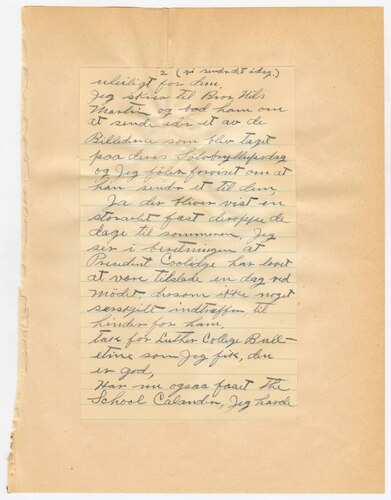 2 (vi sendr det idag)
uleiligt for dem.
Jeg skrev til Bror Nils
Martin og bad ham om
at sende eder et av de
Billederne som blev taget
paa deres Sölvbryllupsdag
og Jeg föler forvisset om at
han sendr et til dem,
Ja der bliver vist en
storartet fast deroppe de
dage til sommeren, Jeg
ser i beretningen at
President Coolidge har lovet
at være tilstede en dag ved
Mödet, dersom ikke noget
særskjilt indtræffen til
hinder for ham,
tak for Luther College Bull-
etine som Jeg fik, den
er god,
Har nu ogsaa faaet The
School Calander, Jeg havde